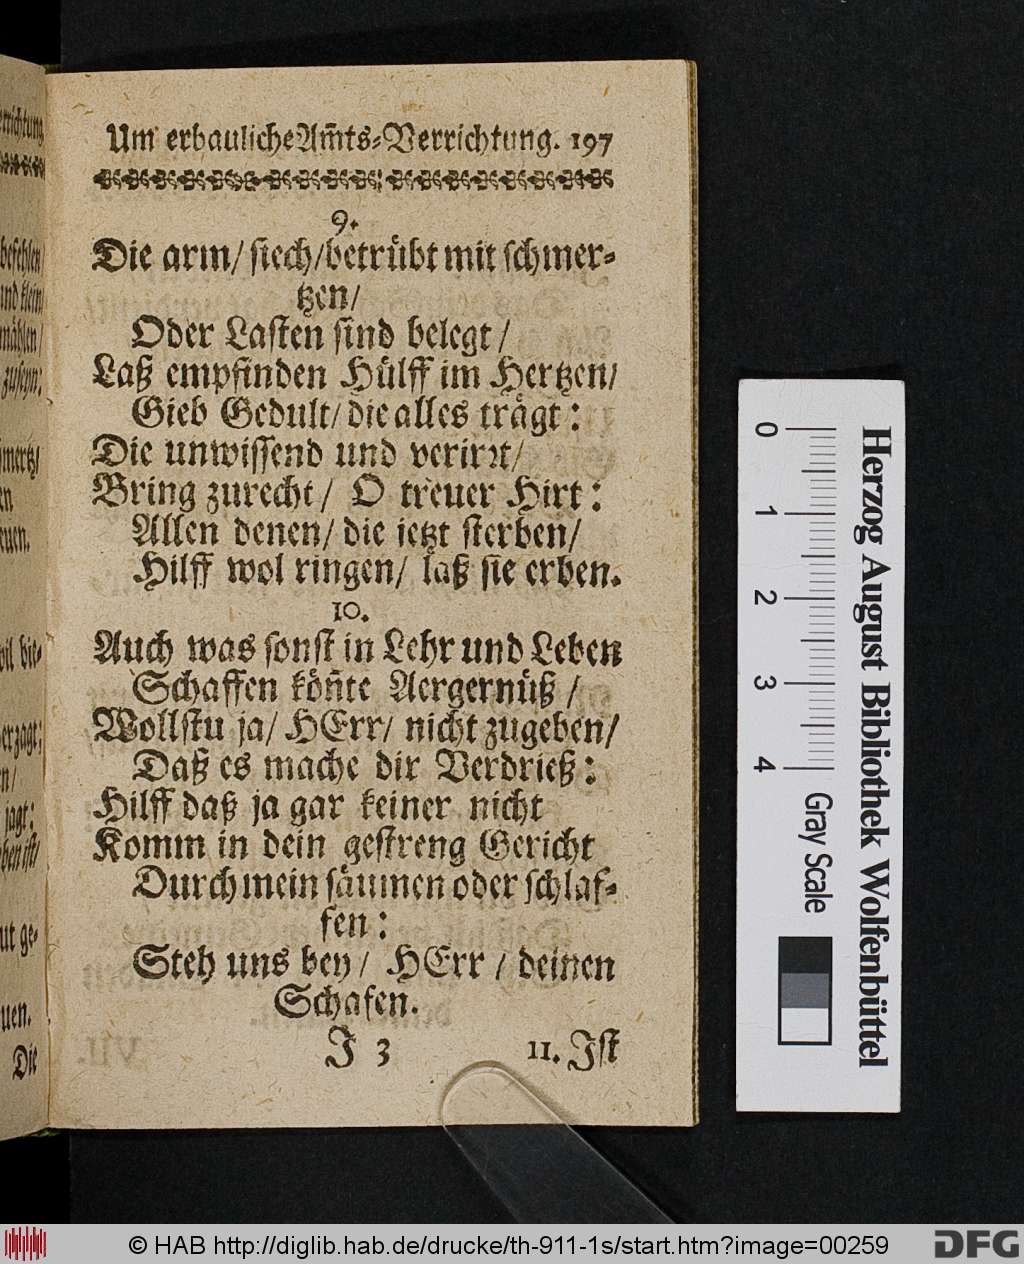 Um erbauliche Am̄ts-Verrichtung. 197
9.
Die arm/ siech/betrübt mit schmer-
tzen/
Oder Lasten sind belegt/
Laß empfinden Hülff im Hertzen/
Gieb Gedult/ die alles trägt:
Die unwissend und verirꝛt/
Bring zurecht/ O treuer Hirt:
Allen denen/ die jetzt sterben/
Hilff wol ringen/ laß sie erben.
10.
Auch was sonst in Lehr und Leben
Schaffen kön̄te Aergernüß/
Wollstu ja/ HErr/ nicht zugeben/
Daß es mache dir Verdrieß:
Hilff daß ja gar keiner nicht
Komm in dein gestreng Gericht
Durch mein säumen oder schlaf-
fen:
Steh uns bey/ HErr/ deinen
Schafen.
J 3 11. Ist
befehlen/
und klein/
zuseyn:
en.
wil bie-
jagt:
ut ge-
uen.
Die
0 1 2 3 4
Gray Scale
Herzog August Bibliothek Wolfenbüttel
© HAB http://diglib.hab.de/drucke/th-911-1s/start.htm?image=00259
DFG